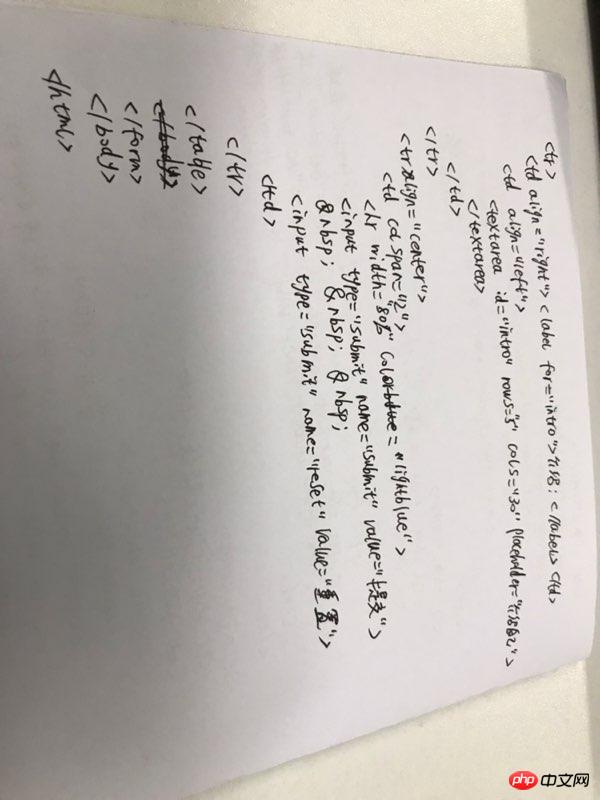 <tr>
<td align="right"><label for="intro">介绍:</label></td>
<td align="left">
<textarea id="intro" rows="5" cols="30" placeholder="介绍自己">
</textarea>
</td>
</tr>
<tr align="center">
<td colspan="2">
<hr width="80%" color="lightblue">
<input type="submit" name="submit" value="提交">
&nbsp; &nbsp; &nbsp;
<input type="submit" name="reset" value="重置">
<td>
</tr>
</table>
</form>
</body>
</html>
php 中文网